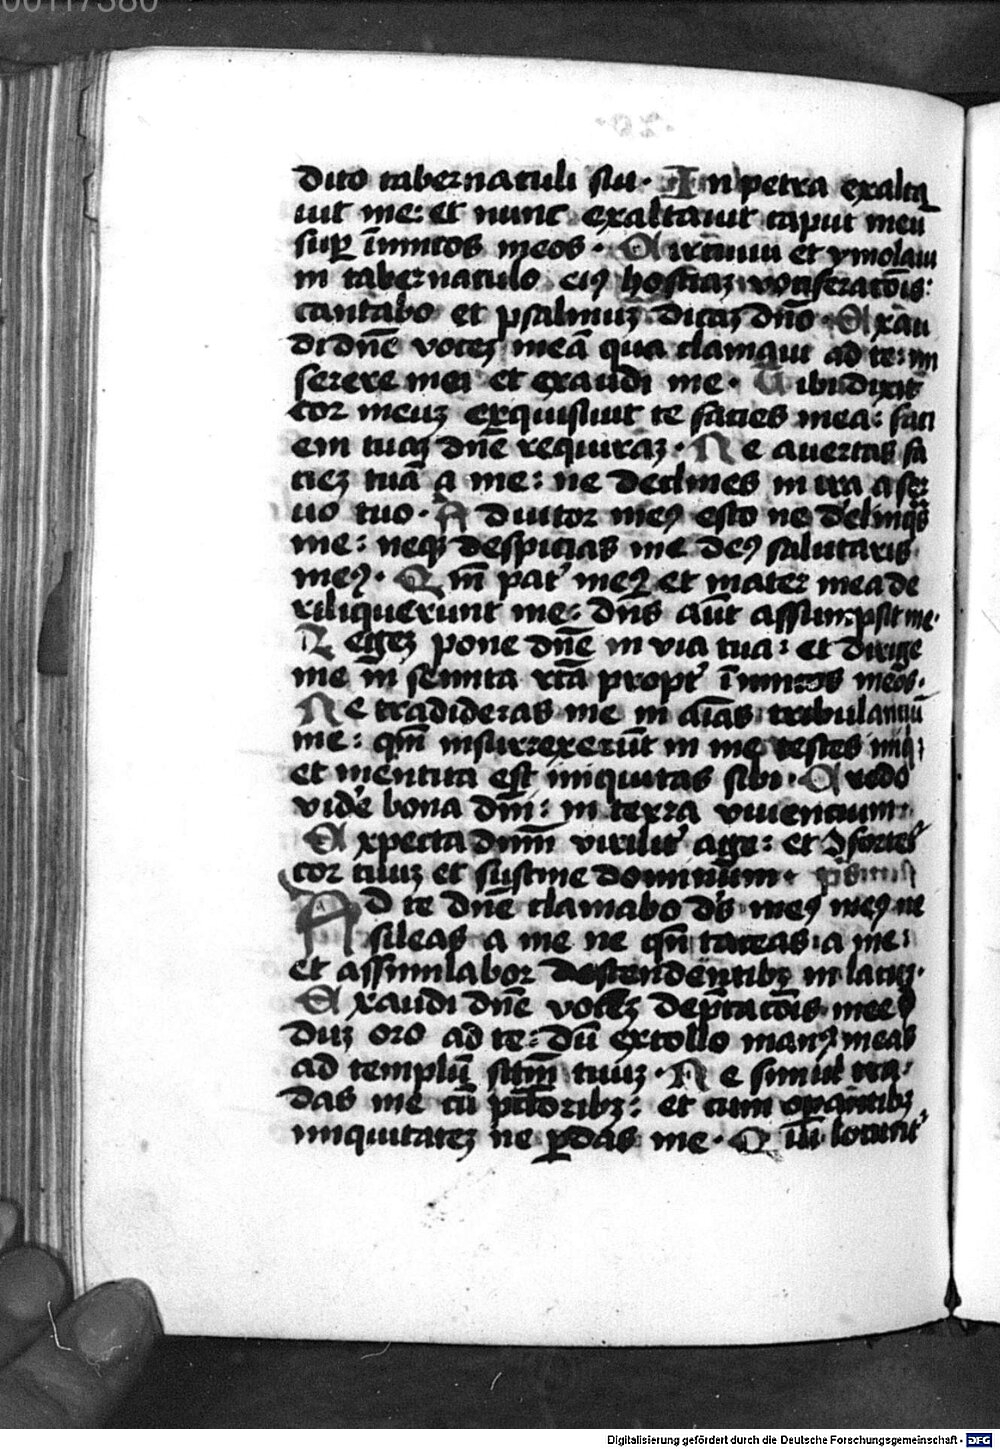 00117380
dito tabernaculi sui. In petra exalta
uit me: et nunc exaltauit caput meū
sup̲ īimicos meos. Circuiui et ymolaui
in tabernaculo eiꝰ hostiaz vociferacōis:
cantabo et psalmuz dicaz dn̄o. Exau
di dn̄e vocez meā qua clamaui ad te: mi
serere mei et exaudi me. Tibi dixit
cor meuz exquisiuit te facies mea: faci
em tuaz dn̄e requiraz. Ne auertas fa
ciez tuā a me: ne declines in ira a ser
uo tuo. Adiutor meꝰ esto ne d'elinqs
me: neqꝫ despicias me deꝰ salutaris
meꝰ. Qm̄ pat' meꝰ et mater mea de
riliquerunt me: dn̄s aūt assumpsit me.
Legez pone dn̄e in via tua: et dirige
me in semita rcā propt' īimicos meos.
Ne tradideras me in aīas tribulanciū
me: qm̄ insurrexerūt in me testes iniqi
et mentita est iniquitas sibi. Credo
vide bona dn̄i: in terra viuencium.
Expecta dnm̄ virilit' age: et ꝯfortet'
cor tuuz et sustine dominum. psmus
Ad te dn̄e clamabo d's meꝰ meꝰ ne
sileas a me ne qn̄ taceas a me:
et assimilabor descendentibꝫ in lacuz.
Exaudi dn̄e vocez dep̄cacōis mee
duz oro ad te: dū extollo manꝰ meas
ad templū sctm̄ tuuz. Ne simul tra
das me cū pctōribꝫ: et cum op̲antibꝫ
iniquitatez ne p̲das me. Qui locunt'
Digitalisierung gefördert durch die Deutsche Forschungsgemeinschaft - DFG